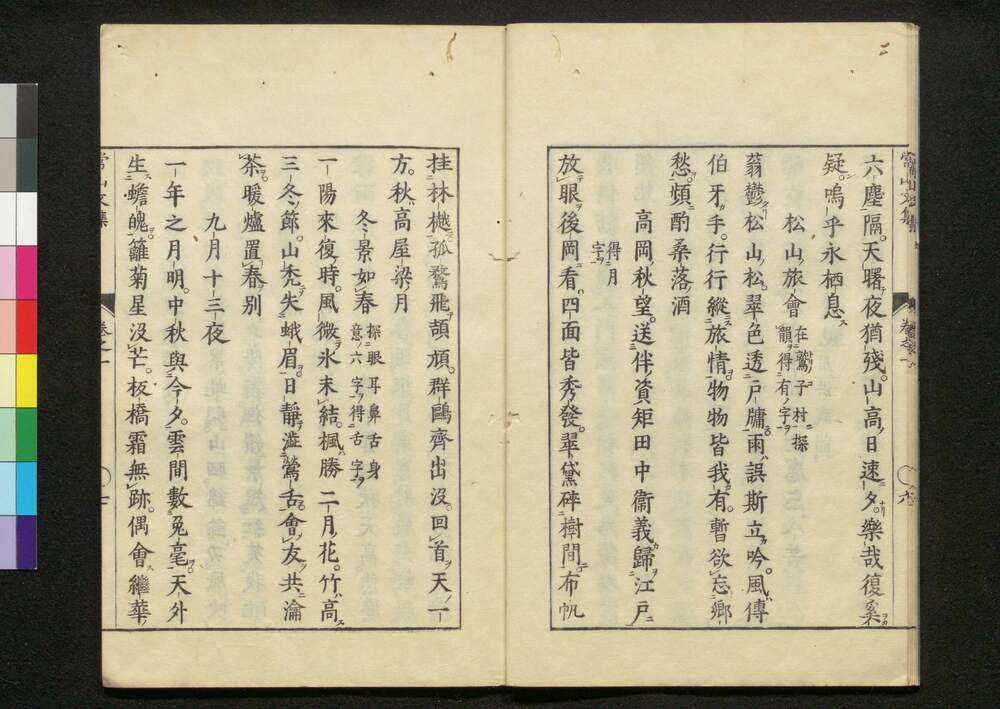 六塵隔。天曙夜猶殘。山高日速夕。樂哉復奚
疑。嗚乎永栖息
松山旅會 在鷲子村探韻得有字
蓊鬱松山松。翠色透戶牖。雨誤斯立吟。風傳
伯牙手。行行縱旅情。物物皆我有。暫欲忘鄉
愁。頻酌桑落酒
高岡秋望。送伴資矩田中衞義歸江戶
得月字
放眼後岡看。四面皆秀發。翠黛砕樹間。布帆
挂林樾。孤鶩飛頡頏。群鷗齊出沒。回首天一
方。秋高屋梁月
冬景如春 探眼耳鼻舌身意六字得舌字
一陽來復時。風微氷未結。楓勝二月花。竹高
三冬節。山禿失蛾眉。日靜澁鶯舌。會友共瀹
茶。暖爐置春别
九月十三夜
一年之月明。中秋與今夕。雲間數兔毫。天外
生蟾魄。籬菊星沒芒。板橋霜無跡。偶會繼華
常山文集
卷之一